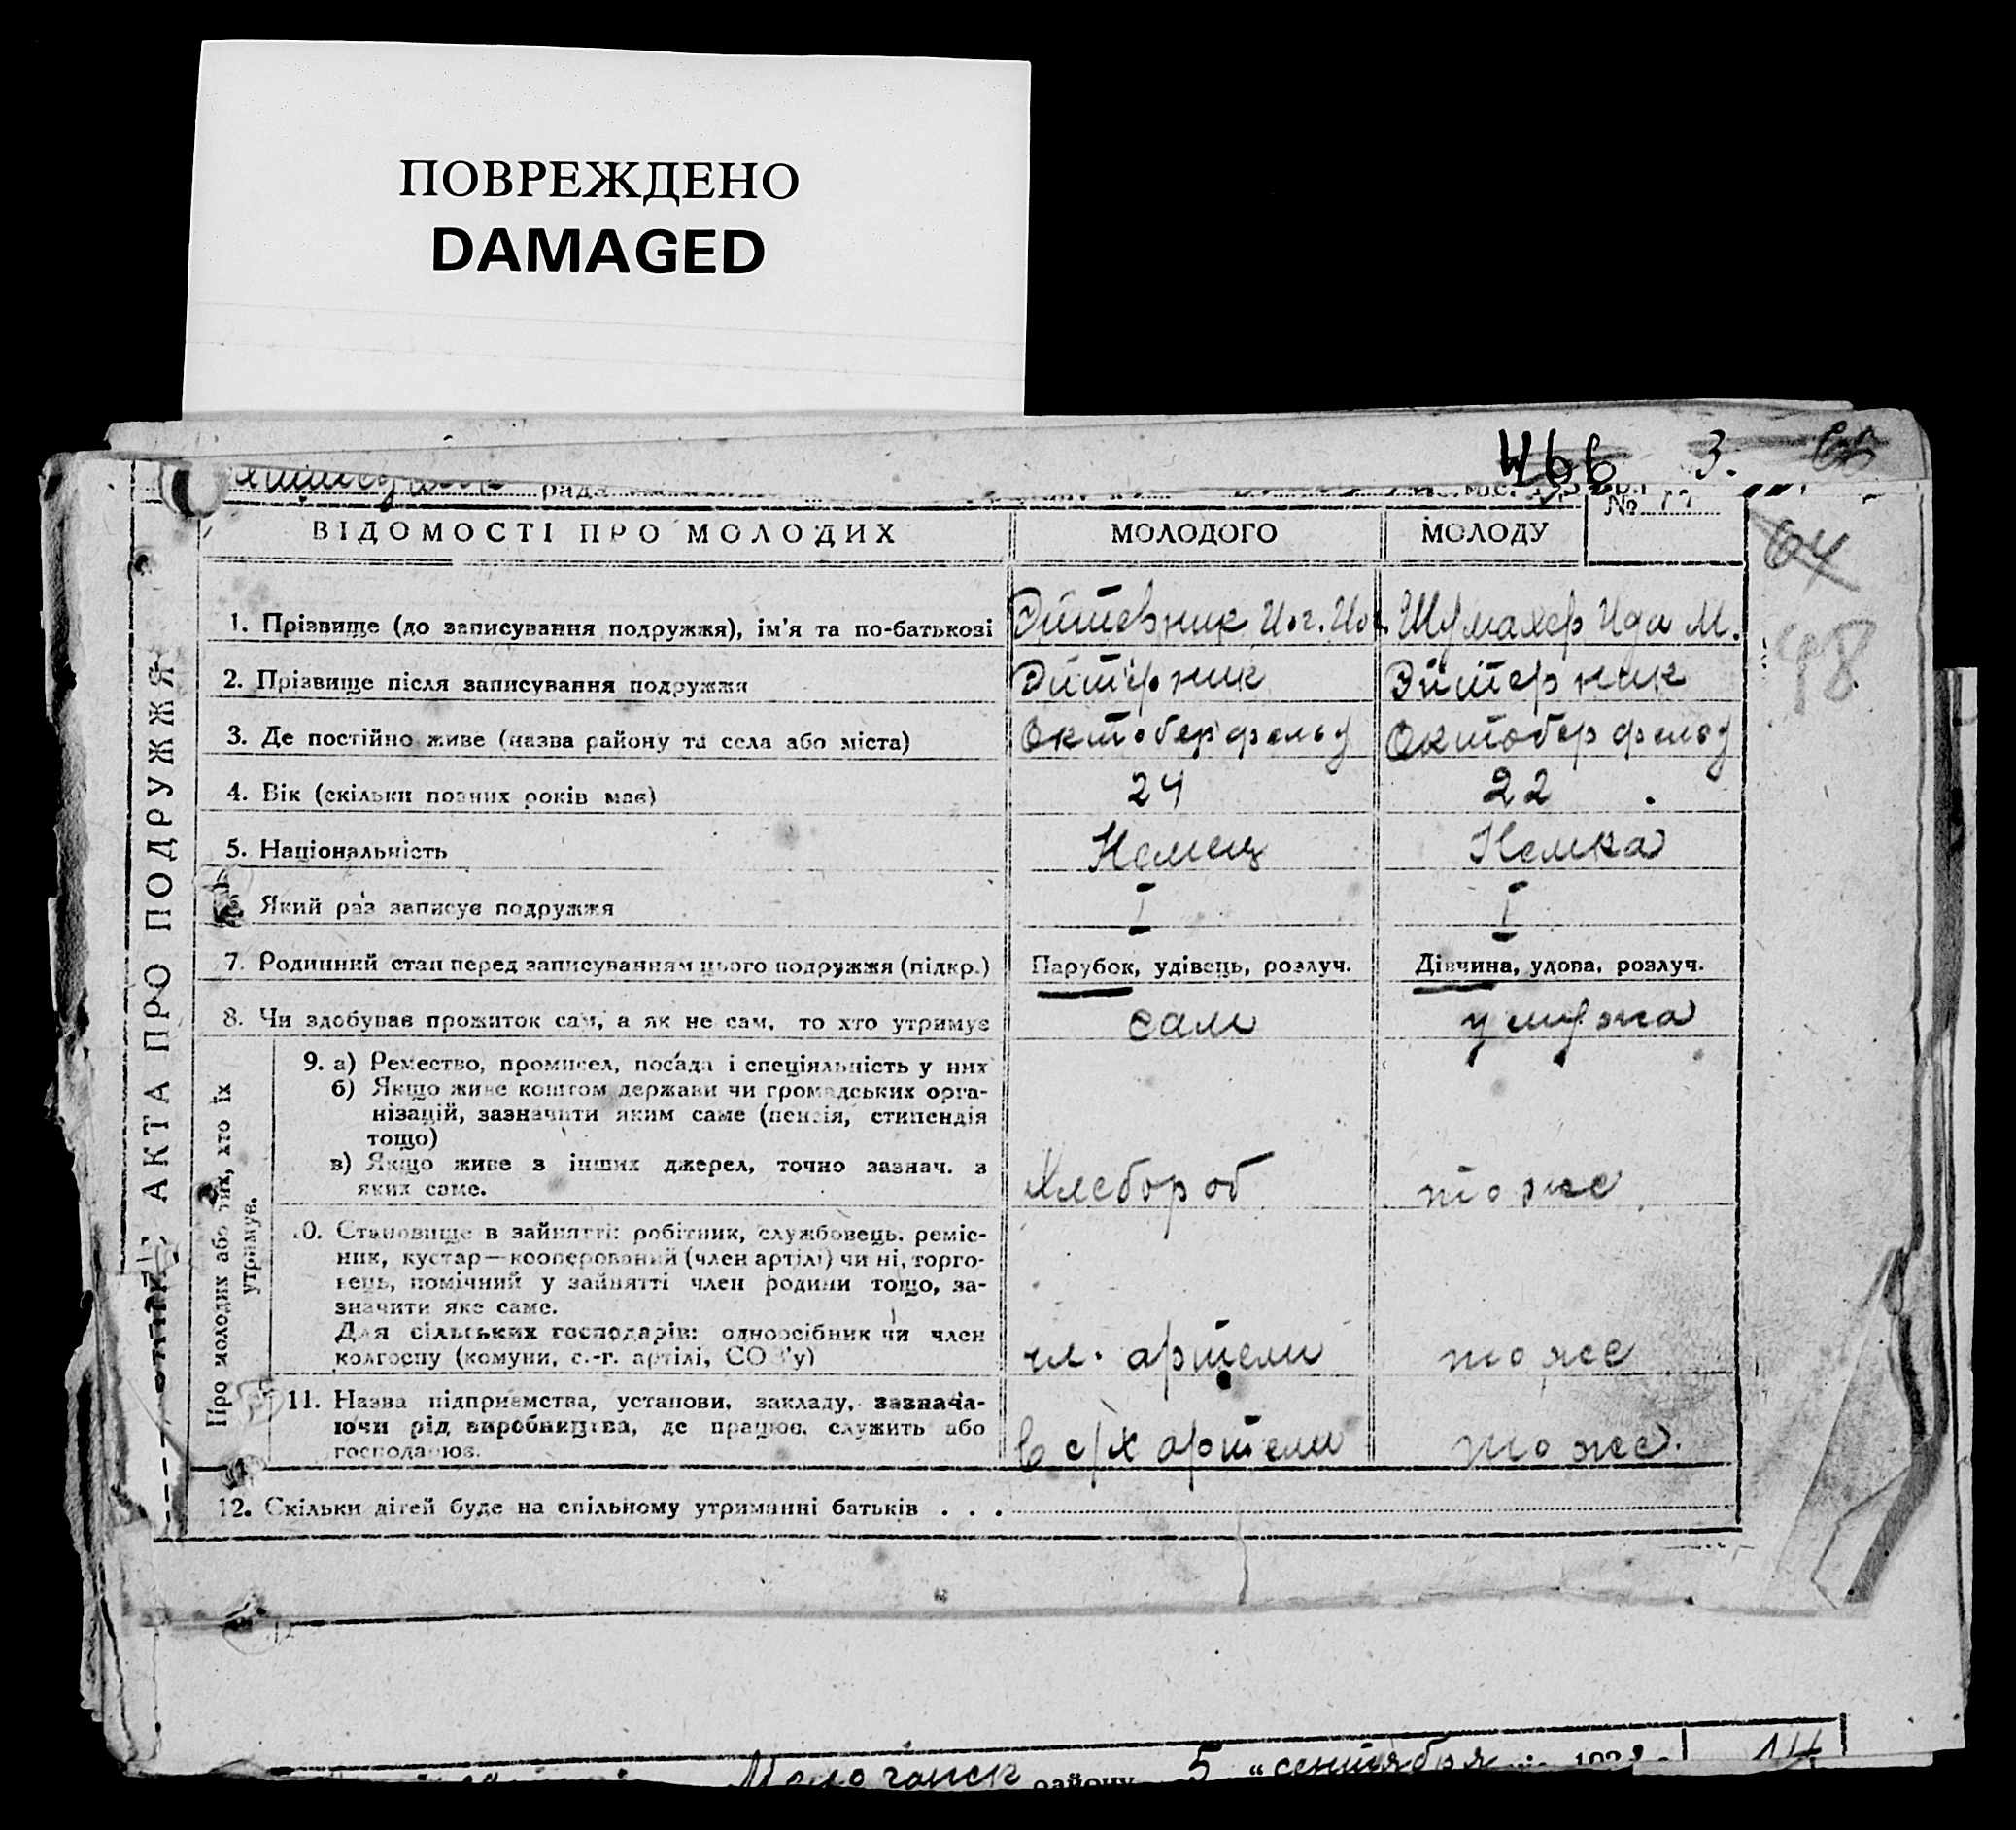 ПОВРЕЖДЕНО
DAMAGED
466 3. 66
рада
№
64
98
АКТА ПРО ПОДРУЖЖЯ
ВІДОМОСТІ ПРО МОЛОДИХ МОЛОДОГО МОЛОДУ
1. Прізвище (до записування подружжя), ім'я та по-батькові Эйтерник Иог. Иог. Шумахер Ида М.
2. Прізвище після записування подружжя Эйтерник Эйтерник
3. Де постійно живе (назва району та села або міста) Октоберфельд Октоберфельд
4. Вік (скільки повних років має) 24 22
5. Національність Немец Немка
Який раз записує подружжя I I
7. Родинний стан перед записуванням цього подружжя (підкр.) Парубок, удівець, розлуч. Дівчина, удова, розлуч.
8. Чи здобував прожиток сам, а як не сам, то хто утримує сам у мужа
Про молодих або тих, хто їх
утримує.
9. а) Ремество, промисел, посада і спеціяльність у них
б) Якщо живе коштом держави чи громадських орга-
нізацій, зазначити яким саме (пенсія, стипендія
тощо)
в) Якщо живе з інших джерел, точно зазнач. з
яких саме. Хлебороб тоже
10. Становище в зайнятті: робітник, службовець, реміс-
ник, кустар—кооперований (член артілі) чи ні, торго-
вець, помічний у зайнятті член родини тощо, за-
значити яке саме.
Для сільських господарів: одноосібник чи член
колгоспу (комуни, с.-г. артілі, СОЗ'у) чл. артели тоже
11. Назва підприємства, установи, закладу, зазнача-
ючи рід виробництва, де працює, служить або
господарює. В с/х артели тоже.
12. Скільки дітей буде на спільному утриманні батьків . . .
Молочанск району 5 " сентября 14